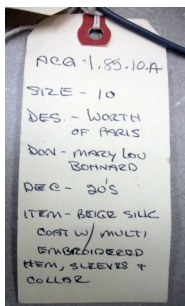 ACQ-1.85.10.A
SIZE - 10
DES. - WORTH
OF PARIS
DON - MARY LOU
BOHNARD
DEC - 20'S
ITEM - BEIGE SILK
COAT W/ MULTI
EMBROIDERED
HEM, SLEEVES +
COLLAR